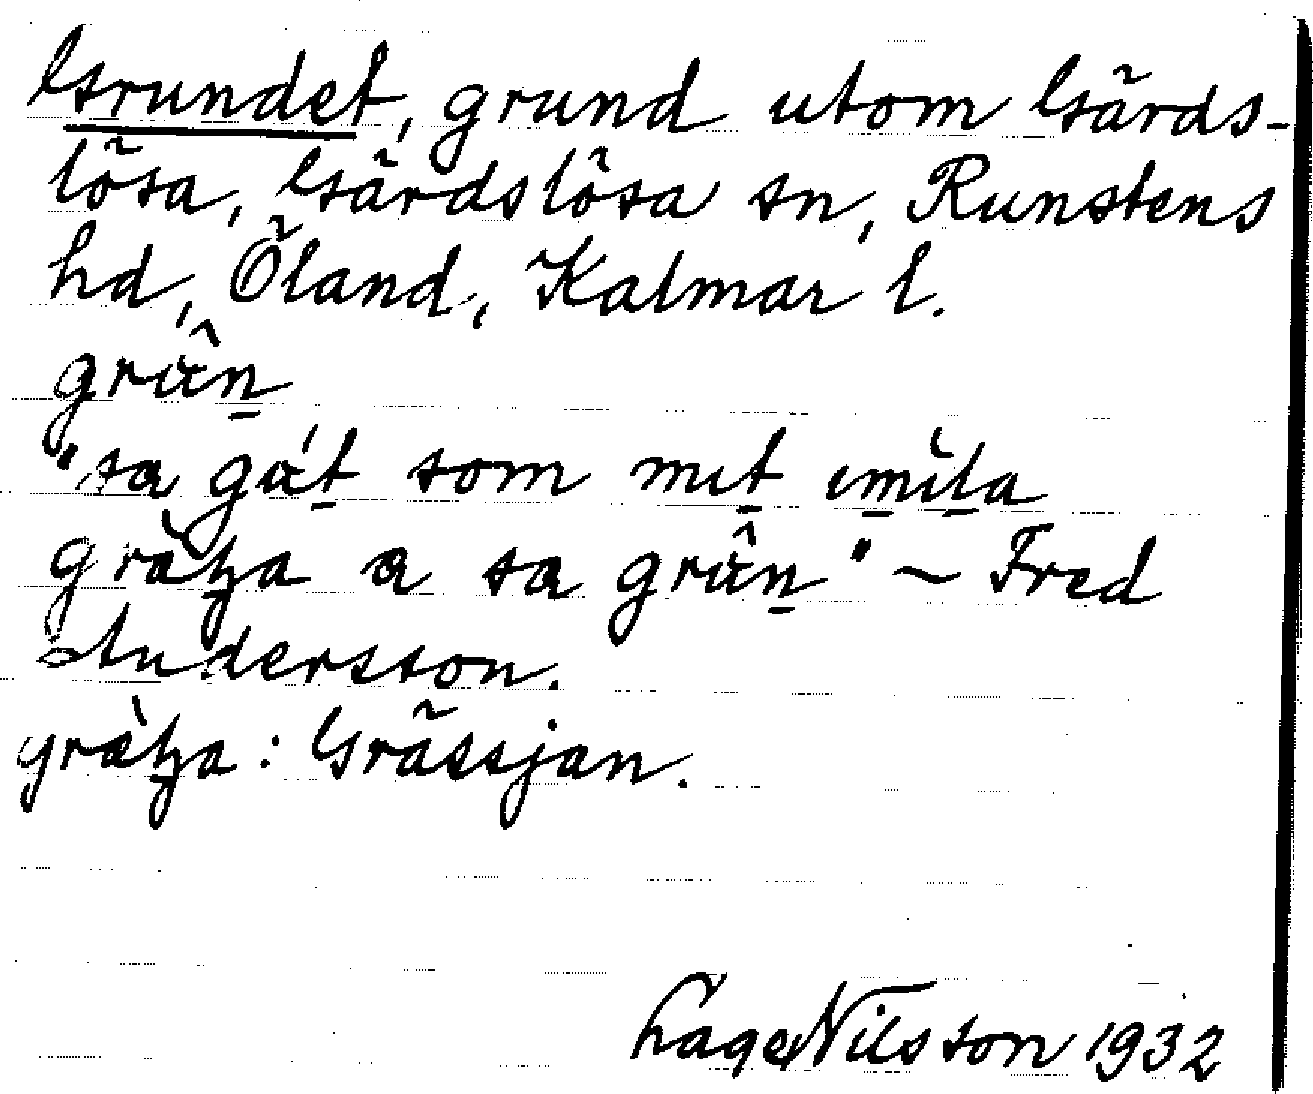 Grundet, grund utom Gärds-
lösa, Gärdslösa sn, Runstens
hd, Öland, Kalmar l.
grɯ̂n̠
"sa gát̠ som mɩt̠ ɩm̠ĭl̠a
gràʒa a sa grɯ̂n̠" ~ Fred
Andersson.
gràʒa : Grässjan.
Lage Nilsson 1932